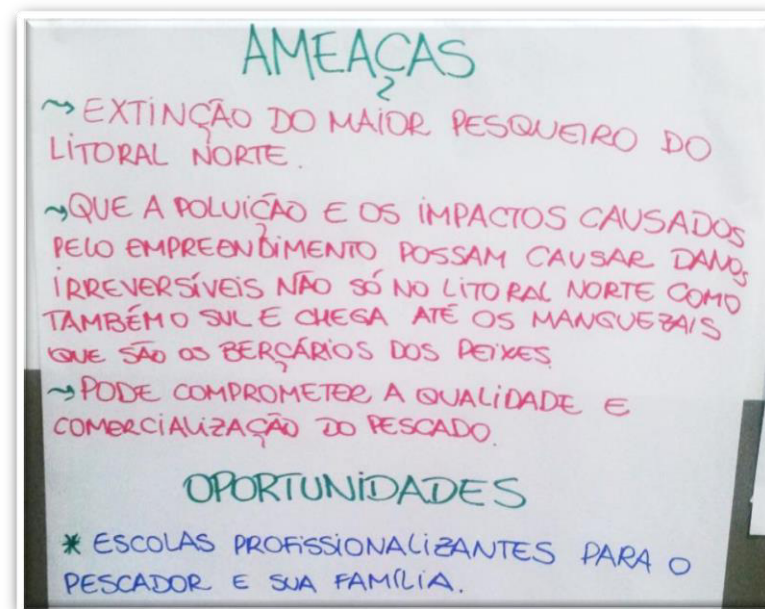 AMEAÇAS
~> EXTINÇÃO DO MAIOR PESQUEIRO DO
LITORAL NORTE.
~> QUE A POLUIÇÃO E OS IMPACTOS CAUSADOS
PELO EMPREENDIMENTO POSSAM CAUSAR DANOS
IRREVERSÍVEIS NÃO SÓ NO LITORAL NORTE COMO
TAMBÉM O SUL E CHEGA ATÉ OS MANGUEZAIS
QUE SÃO OS BERÇÁRIOS DOS PEIXES
~> PODE COMPROMETER A QUALIDADE E
COMERCIALIZAÇÃO DO PESCADO.
OPORTUNIDADES
* ESCOLAS PROFISSIONALIZANTES PARA O
PESCADOR E SUA FAMÍLIA.